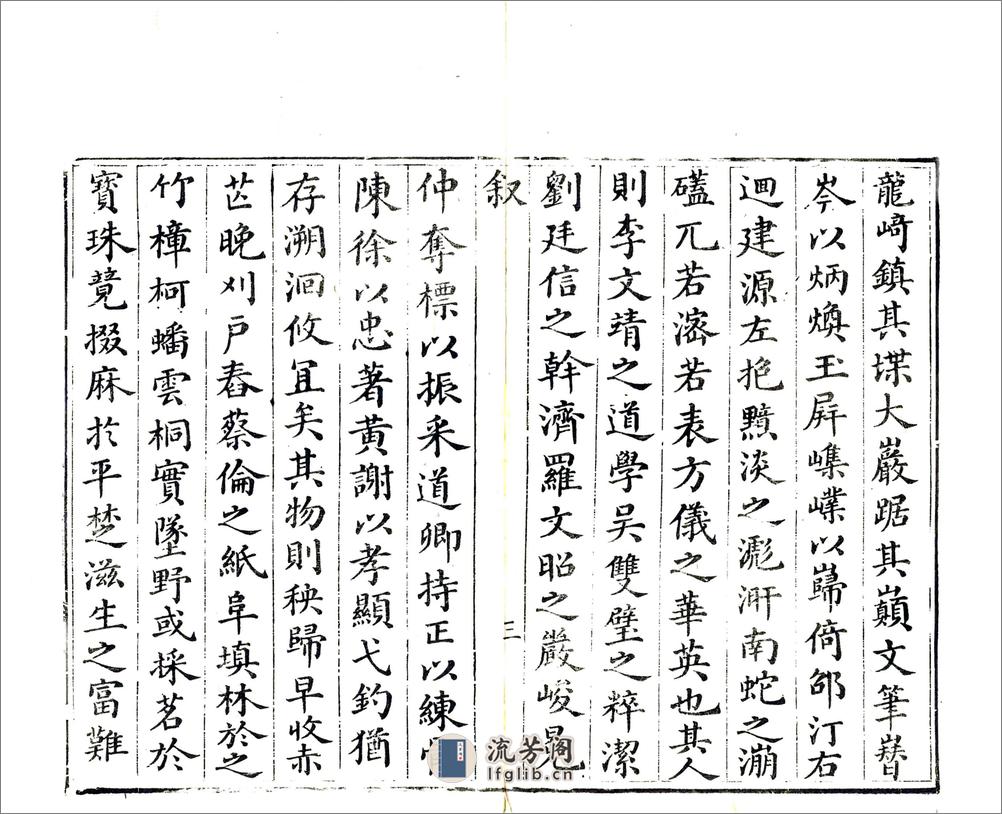 龍﨑鎮其堞大巖踞其巔文筆嶜
岑以炳煥玉屏嶕嶫以巋倚邵汀右
迴建源左挹黯淡之㵢汧南蛇之漰
礚兀若㴵若表方儀之華英也其人
則李文靖之道學吳雙璧之粹潔
劉廷信之幹濟羅文昭之嚴峻晁
叙
三
仲奪標以振采道卿持正以練
陳徐以忠著黃謝以孝顯弋釣猶
存溯洄攸宜矣其物則秧歸早收赤
芑晚刈戶舂蔡倫之紙阜填林於之
竹樟柯蟠雲桐實墜野或採茗於
寶珠竟掇麻於平埜滋生之富難
流芳阁
lfglib.cn